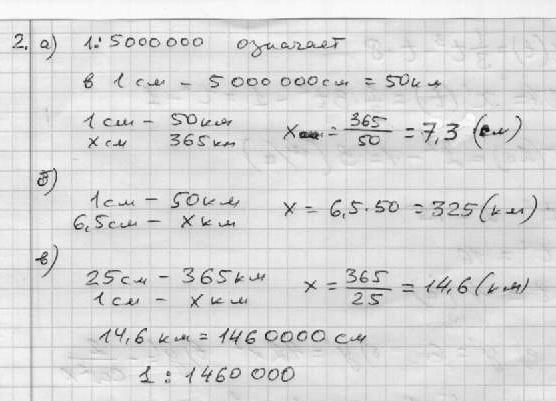 2. а) 1:5000000 означает
в 1 см – 5 000 000 см = 50 км
1 см – 50 км
x см 365 км x = 365/50 = 7,3 (см)
б)
1 см – 50 км
6,5 см – x км x = 6,5·50 = 325 (км)
в)
25 см – 365 км
1 см – x км x = 365/25 = 14,6 (км)
14,6 км = 1460000 см
1 : 1460 000